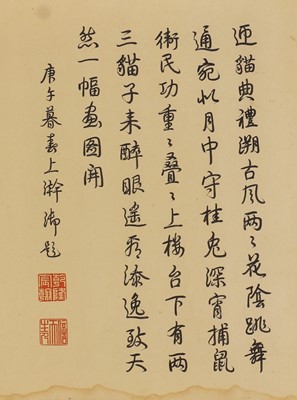 迎貓典禮溯古風两〻花陰跳舞
通宛似月中守桂兔深宵捕鼠
衛民功重〻疊〻上樓台下有两
三貓子来醉眼遙看添逸致天
然一幅畫圖開
庚午暮春上澣御題